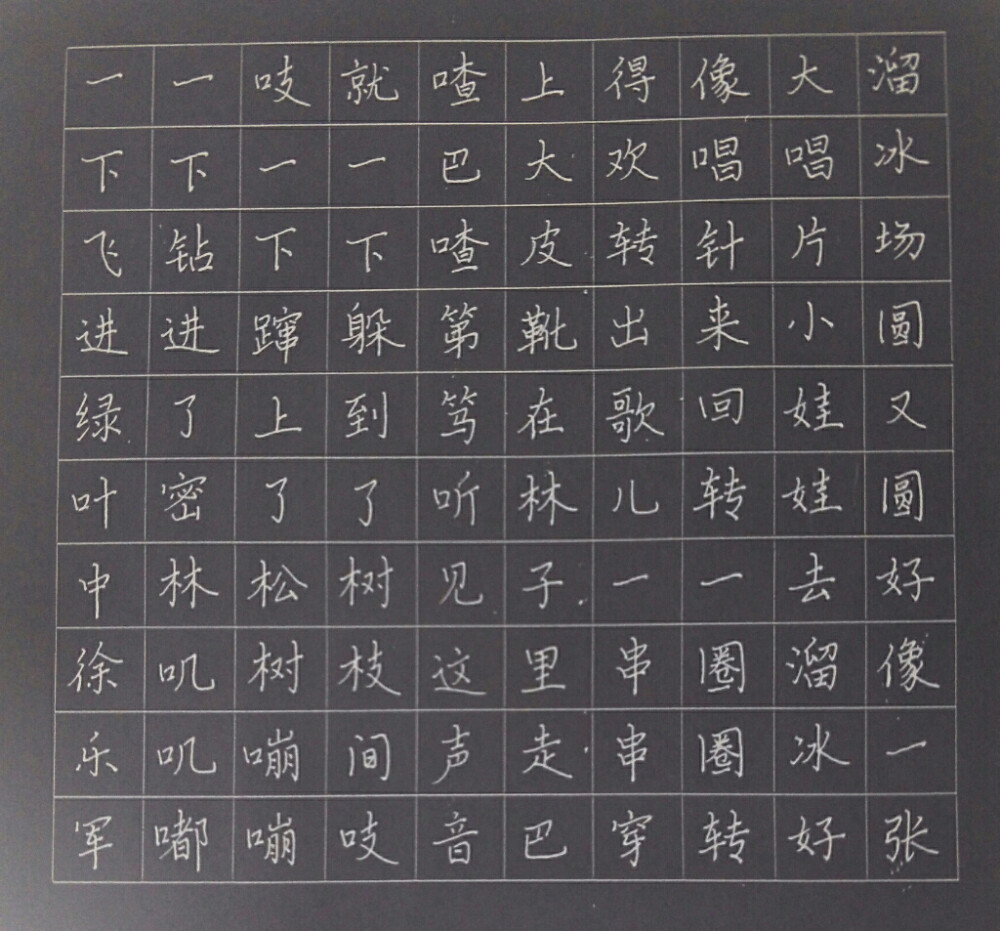 溜冰场圆又圆好像一张
大唱片小娃娃去溜冰好
像唱针来回转一圈圈转
得欢转出歌儿一串串穿
上大皮靴在林子里走巴
喳巴喳第笃听见这声音
就一下躲到了树枝间吱
吱一下蹿上了松树嘣嘣
一下钻进了密林叽叽嘟
一下飞进绿叶中徐乐军